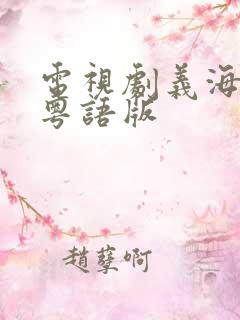 電視劇義海
粵語版
趙孽啊